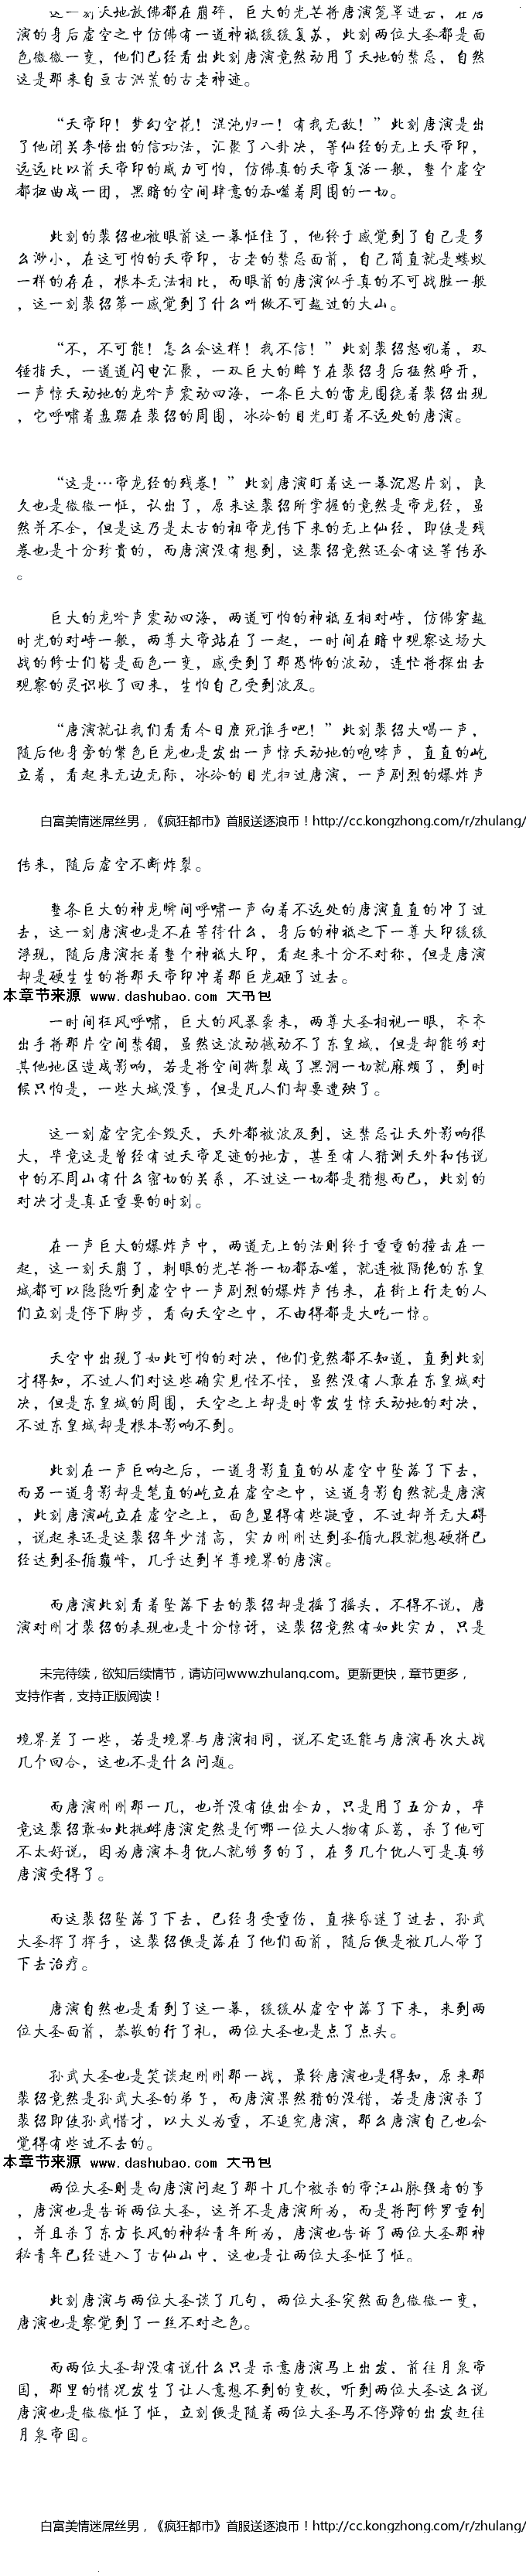 这一刻天地放佛都在崩碎，巨大的光芒将唐演笼罩进去，在唐
演的身后虚空之中仿佛有一道神祗缓缓复苏，此刻两位大圣都是面
色微微一变，他们已经看出此刻唐演竟然动用了天地的禁忌，自然
这是那来自亘古洪荒的古老神迹。
“天帝印！梦幻空花！混沌归一！有我无敌！”此刻唐演是出
了他闭关参悟出的信功法，汇聚了八卦决，等仙经的无上天帝印，
远远比以前天帝印的威力可怕，仿佛真的天帝复活一般，整个虚空
都扭曲成一团，黑暗的空间肆意的吞噬着周围的一切。
此刻的裴绍也被眼前这一幕怔住了，他终于感觉到了自己是多
么渺小，在这可怕的天帝印，古老的禁忌面前，自己简直就是蝼蚁
一样的存在，根本无法相比，而眼前的唐演似乎真的不可战胜一般
，这一刻裴绍第一感觉到了什么叫做不可越过的大山。
“不，不可能！怎么会这样！我不信！”此刻裴绍怒吼着，双
锤指天，一道道闪电汇聚，一双巨大的眸子在裴绍身后猛然睁开，
一声惊天动地的龙吟声震动四海，一条巨大的雷龙围绕着裴绍出现
，它呼啸着盘踞在裴绍的周围，冰冷的目光盯着不远处的唐演。
“这是…帝龙经的残卷！”此刻唐演盯着这一幕沉思片刻，良
久也是微微一怔，认出了，原来这裴绍所掌握的竟然是帝龙经，虽
然并不全，但是这乃是太古的祖帝龙传下来的无上仙经，即使是残
卷也是十分珍贵的，而唐演没有想到，这裴绍竟然还会有这等传承
。
巨大的龙吟声震动四海，两道可怕的神祗互相对峙，仿佛穿越
时光的对峙一般，两尊大帝站在了一起，一时间在暗中观察这场大
战的修士们皆是面色一变，感受到了那恐怖的波动，连忙将探出去
观察的灵识收了回来，生怕自己受到波及。
“唐演就让我们看看今日鹿死谁手吧！”此刻裴绍大喝一声，
随后他身旁的紫色巨龙也是发出一声惊天动地的咆哮声，直直的屹
立着，看起来无边无际，冰冷的目光扫过唐演，一声剧烈的爆炸声
白富美情迷屌丝男，《疯狂都市》首服送逐浪币！http://cc.kongzhong.com/r/zhulang/
传来，随后虚空不断炸裂。
整条巨大的神龙瞬间呼啸一声向着不远处的唐演直直的冲了过
去，这一刻唐演也是不在等待什么，身后的神祗之下一尊大印缓缓
浮现，随后唐演托着整个神祗大印，看起来十分不对称，但是唐演
却是硬生生的将那天帝印冲着那巨龙砸了过去。
本章节来源 www.dashubao.com 大书包
一时间狂风呼啸，巨大的风暴袭来，两尊大圣相视一眼，齐齐
出手将那片空间禁锢，虽然这波动撼动不了东皇城，但是却能够对
其他地区造成影响，若是将空间撕裂成了黑洞一切就麻烦了，到时
候只怕是，一些大城没事，但是凡人们却要遭殃了。
这一刻虚空完全毁灭，天外都被波及到，这禁忌让天外影响很
大，毕竟这是曾经有过天帝足迹的地方，甚至有人猜测天外和传说
中的不周山有什么密切的关系，不过这一切都是猜想而已，此刻的
对决才是真正重要的时刻。
在一声巨大的爆炸声中，两道无上的法则终于重重的撞击在一
起，这一刻天崩了，刺眼的光芒将一切都吞噬，就连被隔绝的东皇
城都可以隐隐听到虚空中一声剧烈的爆炸声传来，在街上行走的人
们立刻是停下脚步，看向天空之中，不由得都是大吃一惊。
天空中出现了如此可怕的对决，他们竟然都不知道，直到此刻
才得知，不过人们对这些确实见怪不怪，虽然没有人敢在东皇城对
决，但是东皇城的周围，天空之上却是时常发生惊天动地的对决，
不过东皇城却是根本影响不到。
此刻在一声巨响之后，一道身影直直的从虚空中坠落了下去，
而另一道身影却是笔直的屹立在虚空之中，这道身影自然就是唐演
，此刻唐演屹立在虚空之上，面色显得有些凝重，不过却并无大碍
，说起来还是这裴绍年少清高，实力刚刚达到圣循九段就想硬拼已
经达到圣循巅峰，几乎达到半尊境界的唐演。
而唐演此刻看着坠落下去的裴绍却是摇了摇头，不得不说，唐
演对刚才裴绍的表现也是十分惊讶，这裴绍竟然有如此实力，只是
未完待续，欲知后续情节，请访问www.zhulang.com。更新更快，章节更多，
支持作者，支持正版阅读！
境界差了一些，若是境界与唐演相同，说不定还能与唐演再次大战
几个回合，这也不是什么问题。
而唐演刚刚那一几，也并没有使出全力，只是用了五分力，毕
竟这裴绍敢如此挑衅唐演定然是何哪一位大人物有瓜葛，杀了他可
不太好说，因为唐演本身仇人就够多的了，在多几个仇人可是真够
唐演受得了。
而这裴绍坠落了下去，已经身受重伤，直接昏迷了过去，孙武
大圣挥了挥手，这裴绍便是落在了他们面前，随后便是被几人带了
下去治疗。
唐演自然也是看到了这一幕，缓缓从虚空中落了下来，来到两
位大圣面前，恭敬的行了礼，两位大圣也是点了点头。
孙武大圣也是笑谈起刚刚那一战，最终唐演也是得知，原来那
裴绍竟然是孙武大圣的弟子，而唐演果然猜的没错，若是唐演杀了
裴绍即使孙武惜才，以大义为重，不追究唐演，那么唐演自己也会
觉得有些过不去的。
本章节来源 www.dashubao.com 大书包
两位大圣则是向唐演问起了那十几个被杀的帝江山脉强者的事
，唐演也是告诉两位大圣，这并不是唐演所为，而是将阿修罗重创
，并且杀了东方长风的神秘青年所为，唐演也告诉了两位大圣那神
秘青年已经进入了古仙山中，这也是让两位大圣怔了怔。
此刻唐演与两位大圣谈了几句，两位大圣突然面色微微一变，
唐演也是察觉到了一丝不对之色。
而两位大圣却没有说什么只是示意唐演马上出发，前往月泉帝
国，那里的情况发生了让人意想不到的变故，听到两位大圣这么说
唐演也是微微怔了怔，立刻便是随着两位大圣马不停蹄的出发赶往
月泉帝国。
白富美情迷屌丝男，《疯狂都市》首服送逐浪币！http://cc.kongzhong.com/r/zhulang/